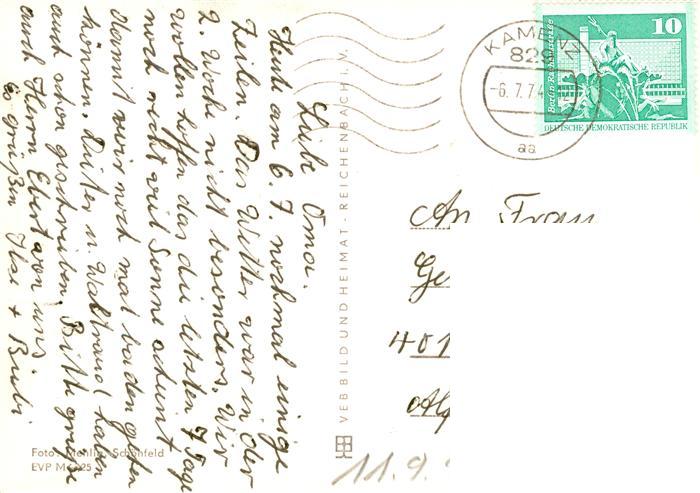 Liebe Oma.
Heute am 6.7. nochmal einige
Zeilen. Das Wetter war in der
2. Woche nicht besonders. Wir
wollen hoffen das die letzten 7 Tage
noch recht viel Sonne scheint
damit wir noch mal baden gehen
können. Dieter u. Waltraud haben
auch schon geschrieben. Bitte grüße
auch Herrn Ebert von uns.
Es grüßen Ilse + Bubi.
Foto: Schönfeld
EVP M
VEB BILD UND HEIMAT · REICHENBACH I. V.
KAMENZ
829
-6.7.7
aa
10
Berlin
DEUTSCHE DEMOKRATISCHE REPUBLIK
An Frau
Ge
401
11.9.